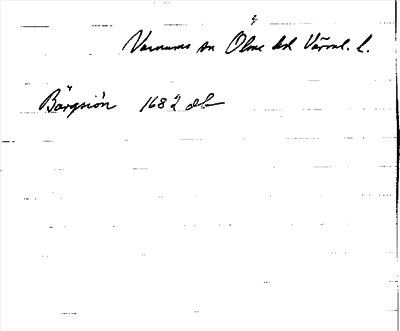 Varnums sn Ölme hd Värml. l.
Bärgsiön 1682 db